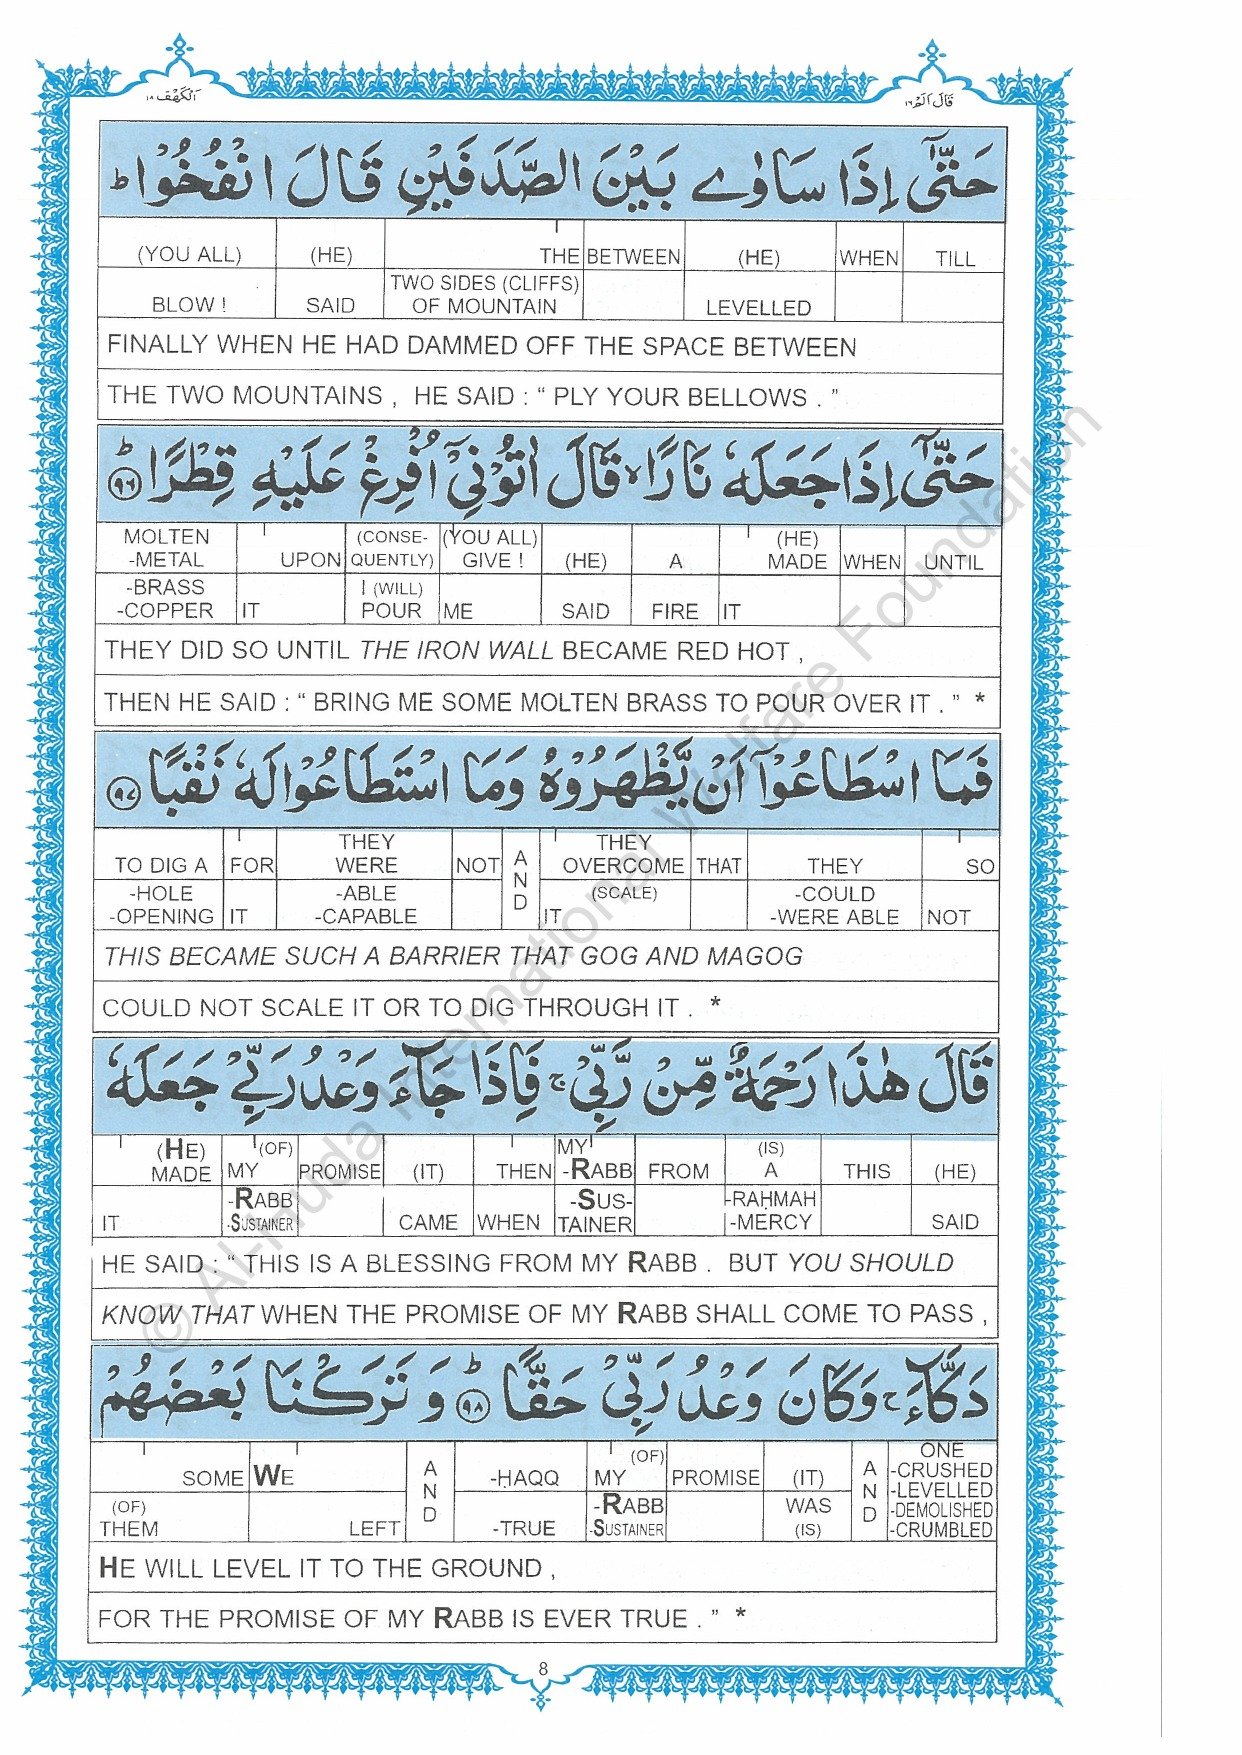 اَلْكَهْف ١٨
قَالَ اَلَمْ ١٦
حَتّٰٓى اِذَا سَاوٰى بَيْنَ الصَّدَفَيْنِ قَالَ انْفُخُوْا ؕ
(YOU ALL) (HE) THE BETWEEN (HE) WHEN TILL
BLOW ! SAID TWO SIDES (CLIFFS) OF MOUNTAIN LEVELLED
FINALLY WHEN HE HAD DAMMED OFF THE SPACE BETWEEN
THE TWO MOUNTAINS , HE SAID : “ PLY YOUR BELLOWS . ”
حَتّٰٓى اِذَا جَعَلَهٗ نَارًا ۙ قَالَ اٰتُوْنِيْٓ اُفْرِغْ عَلَيْهِ قِطْرًا ؕ ٩٦
MOLTEN -METAL UPON (CONSE-QUENTLY) (YOU ALL) GIVE ! (HE) A (HE) MADE WHEN UNTIL
-BRASS -COPPER IT I (WILL) POUR ME SAID FIRE IT
THEY DID SO UNTIL THE IRON WALL BECAME RED HOT ,
THEN HE SAID : “ BRING ME SOME MOLTEN BRASS TO POUR OVER IT . ” *
فَمَا اسْطَاعُوْٓا اَنْ يَّظْهَرُوْهُ وَمَا اسْتَطَاعُوْا لَهٗ نَقْبًا ٩٧
TO DIG A FOR THEY WERE NOT AND THEY OVERCOME THAT THEY SO
-HOLE -OPENING IT -ABLE -CAPABLE (SCALE) IT -COULD -WERE ABLE NOT
THIS BECAME SUCH A BARRIER THAT GOG AND MAGOG
COULD NOT SCALE IT OR TO DIG THROUGH IT . *
قَالَ هٰذَا رَحْمَةٌ مِّنْ رَّبِّيْ ۚ فَاِذَا جَآءَ وَعْدُ رَبِّيْ جَعَلَهٗ
(HE) MADE (OF) MY PROMISE (IT) THEN MY -RABB FROM (IS) A THIS (HE)
IT -RABB -SUSTAINER CAME WHEN -SUS-TAINER -RAḤMAH -MERCY SAID
HE SAID : “ THIS IS A BLESSING FROM MY RABB . BUT YOU SHOULD
KNOW THAT WHEN THE PROMISE OF MY RABB SHALL COME TO PASS ,
دَكَّآءَ ۚ وَكَانَ وَعْدُ رَبِّيْ حَقًّا ؕ ٩٨ وَتَرَكْنَا بَعْضَهُمْ
SOME WE AND -ḤAQQ (OF) MY PROMISE (IT) AND ONE -CRUSHED -LEVELLED
(OF) THEM LEFT -TRUE -RABB -SUSTAINER WAS (IS) -DEMOLISHED -CRUMBLED
HE WILL LEVEL IT TO THE GROUND ,
FOR THE PROMISE OF MY RABB IS EVER TRUE . ” *
8
© Al-Huda International Welfare Foundation